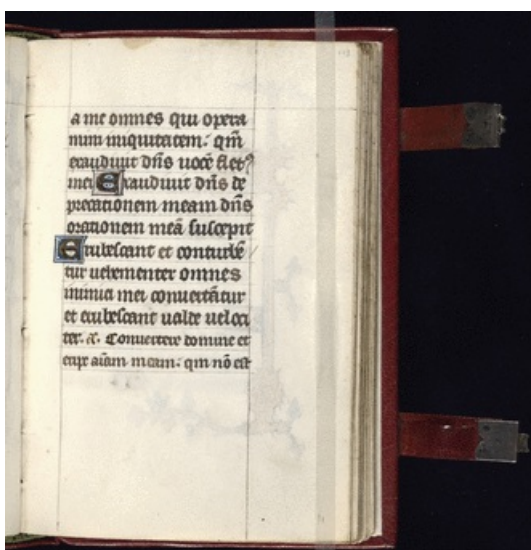 a me omnes qui opera
mini iniquitatem: qm̄
exaudiuit dn̄s uocē flet᷒
mei Exaudiuit dn̄s de
precationem meam dn̄s
orationem meā suscepit
Erubescant et conturbē
tur uehementer omnes
inimici mei conuertātur
et erubescant ualde ueloci
ter. a᷒. Conuertere domine et
eripe aīam meam: qm nō est